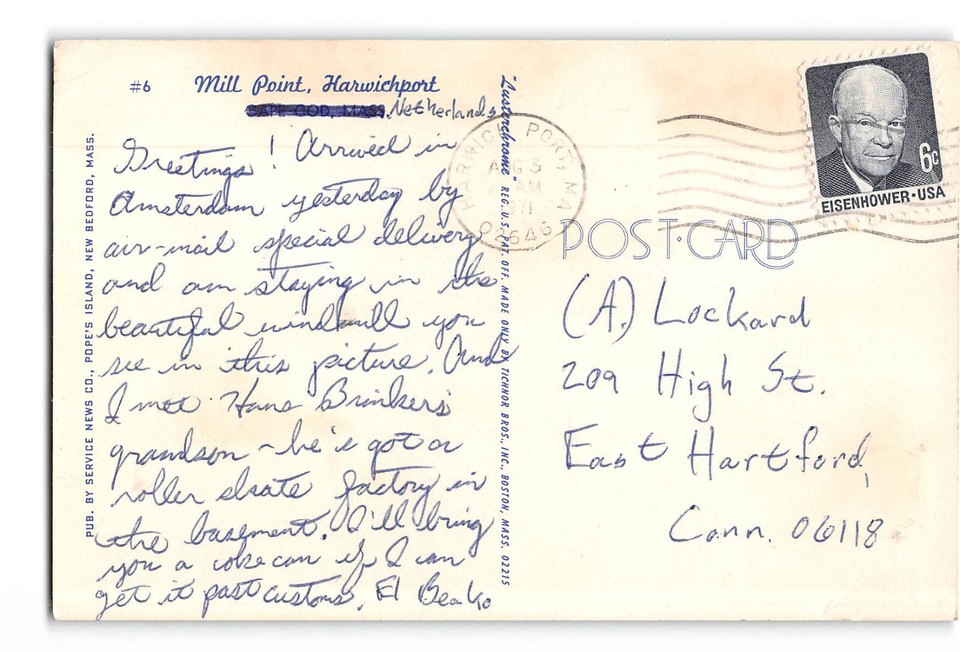 #6 Mill Point, Harwichport
CAPE COD, MASS. Netherlands
Greetings! Arrived in
Amsterdam yesterday by
air-mail special delivery
and am staying in the
beautiful windmill you
see in this picture. And
I met Hans Brinker's
grandson - he's got a
roller skate factory in
the basement. I'll bring
you a coke can if I can
get it past customs. El Beako
PUB. BY SERVICE NEWS CO., POPE'S ISLAND, NEW BEDFORD, MASS.
"Lusterchrome" REG. U.S. PAT. OFF. MADE ONLY BY TICHNOR BROS., INC., BOSTON, MASS. 02215
HARWICH PORT, MA
AUG 3
AM
1971
02646
6c
EISENHOWER·USA
POST·CARD
(A.) Lockard
209 High St.
East Hartford,
Conn. 06118